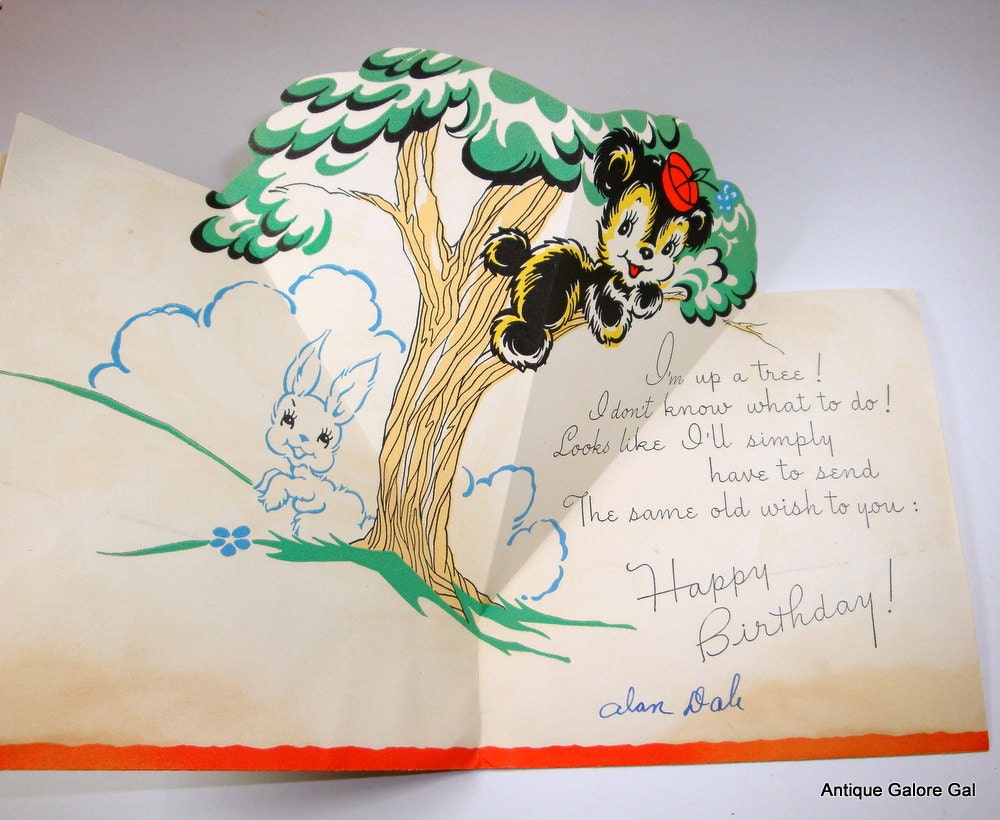 I'm up a tree!
I don't know what to do!
Looks like I'll simply
have to send
The same old wish to you:
Happy
Birthday!
alan Dale
Antique Galore Gal